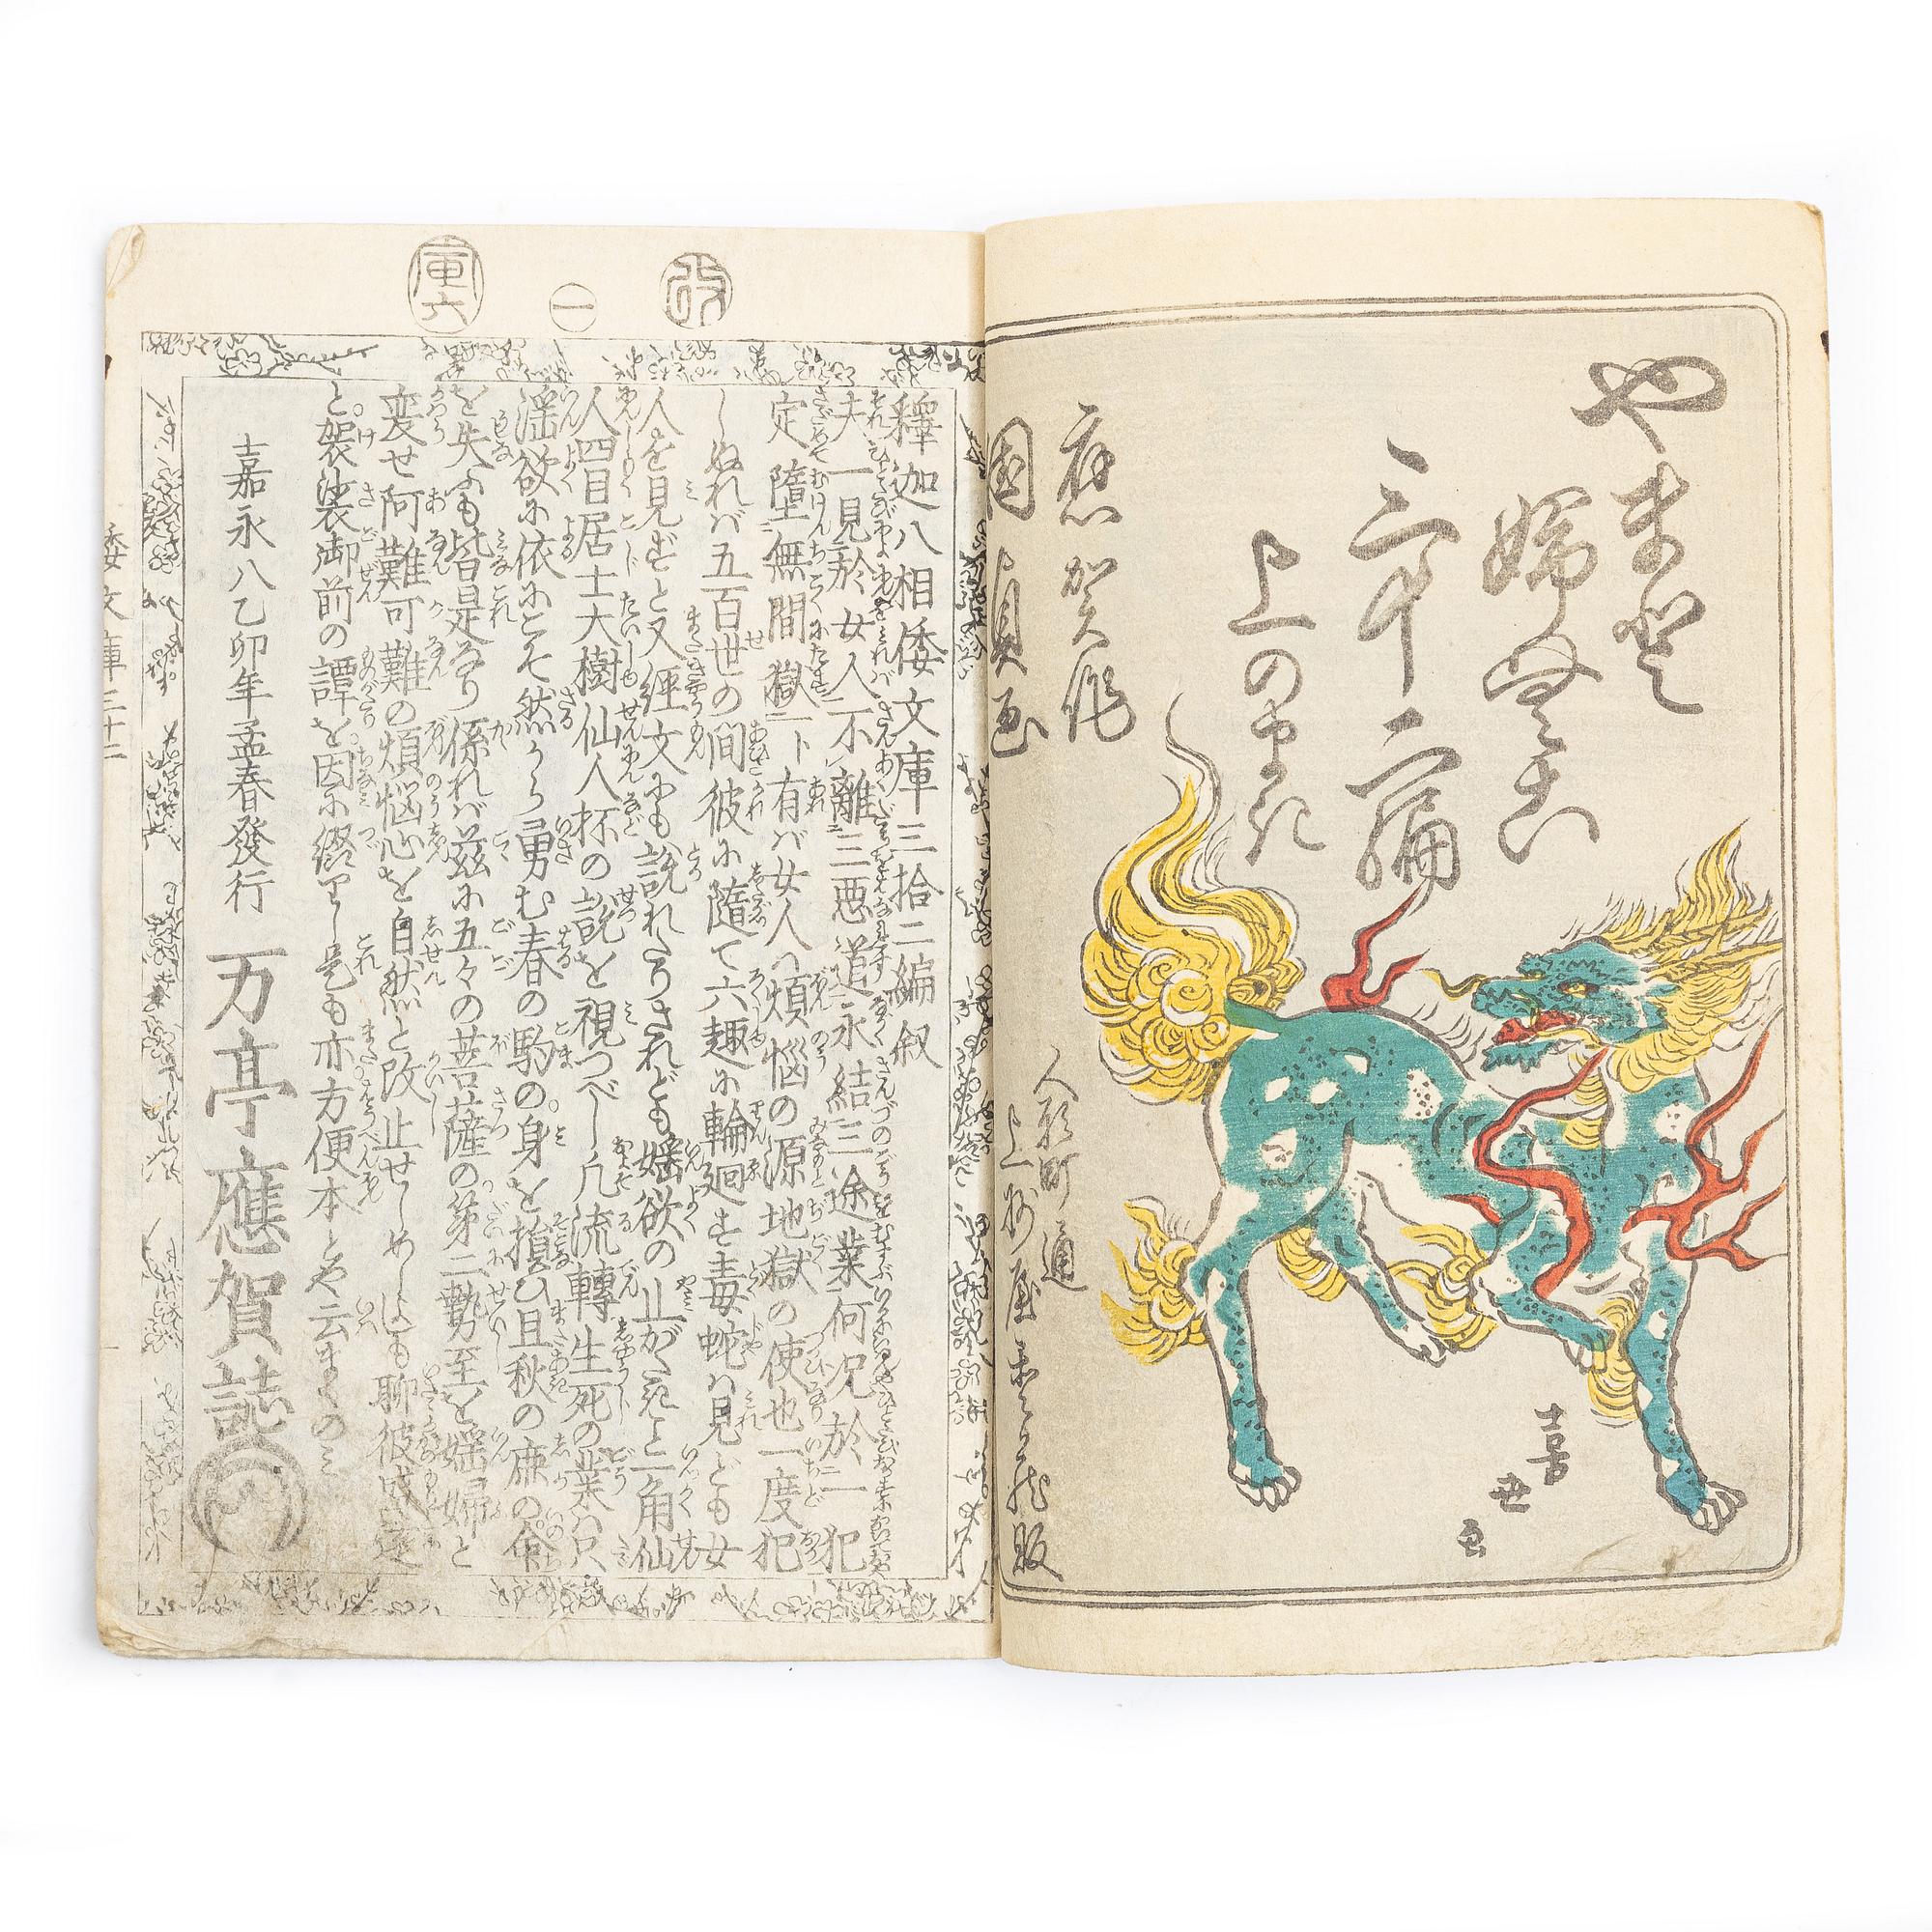 やまと
婦美こ
三十二編
上のまき
應賀作
国貞画
人形町通
上州屋重蔵版
喜世
画
改
一
寅六
釋迦八相倭文庫三拾二編叙
夫一見於女人不離三悪道永結三途業何况於一犯
定墮無間獄ト有バ女人ハ煩悩の源地獄の使也一度犯
しぬれバ五百世の間彼に随て六趣に輪廻す毒蛇ハ見ども女
人を見ずと又經文にも説れたりされども婬欲の止がたき一角仙
人四目居士大樹仙人杯の説を視つべし凡流轉生死の業ハ只
淫欲に依にとぞ然から勇む春の駒の身を損ひ且秋の鹿の命
を失ふも皆是なり係れバ茲に五々の菩薩の第二勢至を婬婦と
変せ阿難可難の煩悩心を自然と改止せしめしも聊彼盛遠
と袈裟御前の譚を因に綴りし是も亦方便本とや云まくのミ
嘉永八乙卯年孟春發行
万亭應賀誌
倭文庫三十二